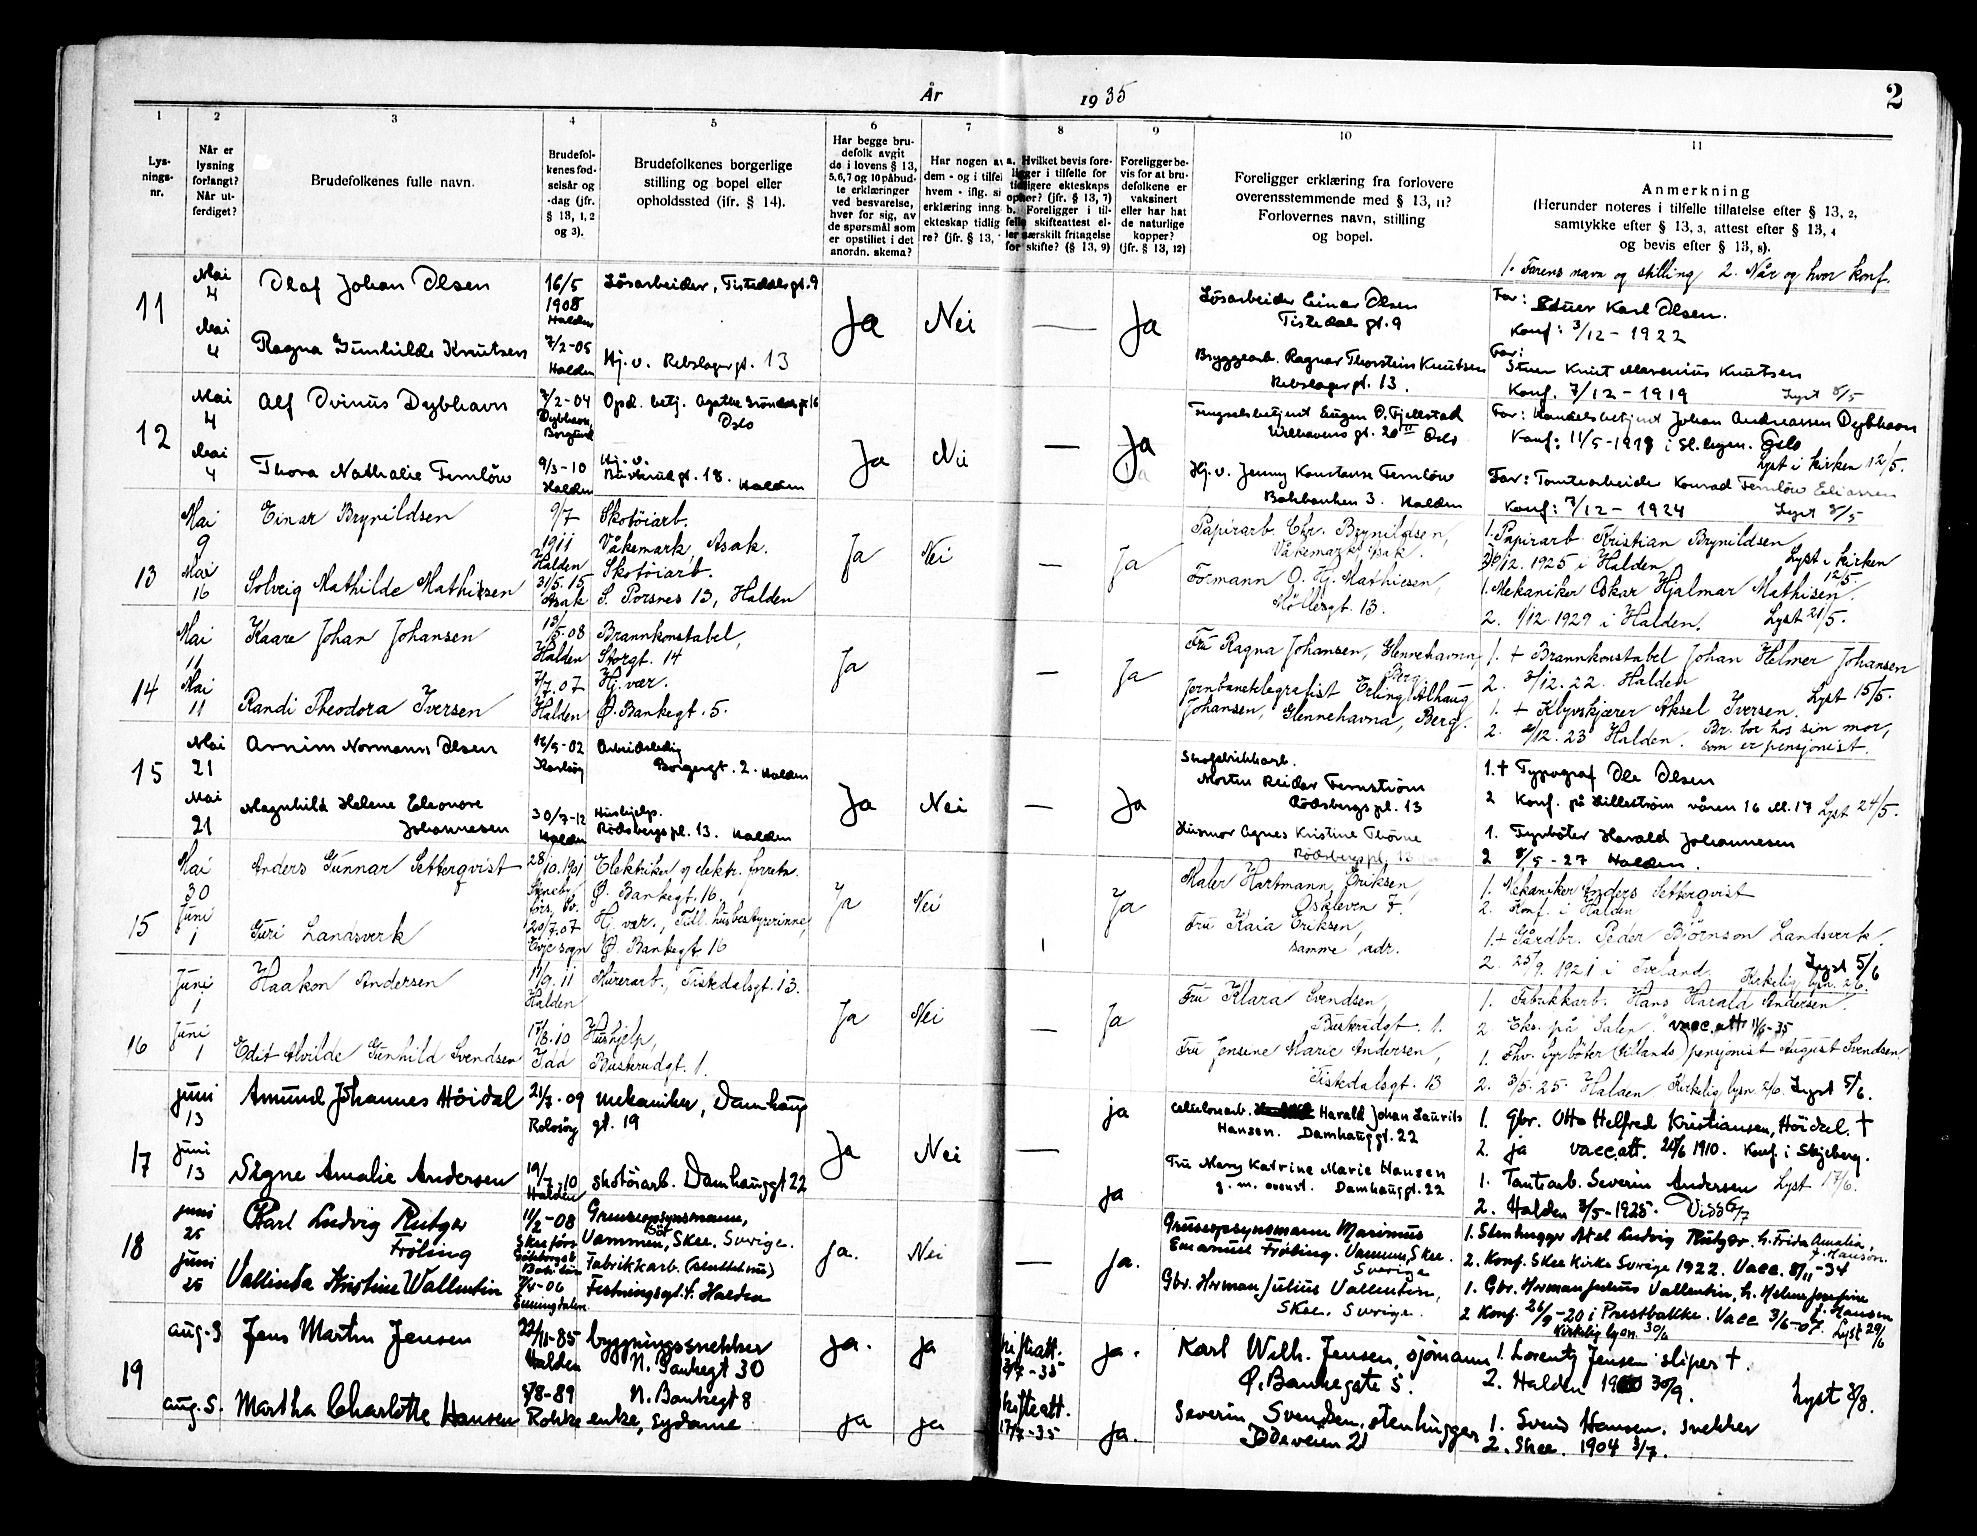 År 1935
2
1
2
3
4
5
6
7
8
9
10
11
Lys-
nings-
nr.
Når er
lysning
forlangt?
Når ut-
ferdiget?
Brudefolkenes fulle navn.
Brudefol-
kenes fød-
selsår og
-dag (jfr.
§ 13, 1, 2
og 3).
Brudefolkenes borgerlige
stilling og bopel eller
opholdssted (jfr. § 14).
Har begge bru-
defolk avgit
de i lovens § 13,
5, 6, 7 og 10 påbud-
te erklæringer
ved besvarelse,
hver for sig, av
de spørsmål som
er opstillet i det
anordn. skema?
Har nogen av
dem - og i tilfel
hvem - iflg. si
erklæring inng
ekteskap tidlig
re? (jfr. § 13,
a. Hvilket bevis fore-
ligger i tilfelle for
tidligere ekteskaps
ophør? (jfr. § 13, 7)
b. Foreligger i til-
felle skifteattest el-
ler særskilt fritagelse
for skifte? (§ 13, 9)
Foreligger be-
vis for at bru-
defolkene er
vaksinert
eller har hat
de naturlige
kopper?
(jfr. § 13, 12)
Foreligger erklæring fra forlovere
overensstemmende med § 13, 11?
Forlovernes navn, stilling
og bopel.
Anmerkning
(Herunder noteres i tilfelle tillatelse efter § 13, 2,
samtykke efter § 13, 3, attest efter § 13, 4
og bevis efter § 13, 8).
1. Farens navn og stilling 2. Når og hvor konf.
11
Mai
4
Olaf Johan Olsen
16/5
1908
Halden
Løsarbeider, Tistedalsgt. 9
Ja
Nei
—
Ja
Løsarbeider Einar Olsen
Tistedalsgt. 9
Far: Stuer Karl Olsen.
Konf: 3/12 - 1922
Mai
4
Ragna Gunhilde Knutsen
7/2-05
Halden
Hj.v. Rebslagergt. 13
Bryggearb. Ragnar Thorstein Knutsen
Rebslagergt. 13.
Far:
Stuer Knut Marenius Knutsen
Konf. 7/12 - 1919 Lyst 8/5
12
Mai
4
Alf Ovinus Dybhavn
7/2-04
Dybhavn,
Borgund
Opd. betj. Agathe Grøndalsgt. 16
Oslo
Ja
Nei
—
Ja
Fengselsbetjent Eugen O. Fjellstad
Welhavens gt. 20 II Oslo
Far: Handelsbetjent Johan Andreassen Dybhavn
Konf: 11/5-1919 i Oslo
Lyst i kirken 12/5.
Mai
4
Thora Nathalie Fernlöw
9/3-10
Halden
Hj.v.
Buskrudgt. 18. Halden
Hj.v. Jenny Konstanse Fernlöw
Bakbanken 3. Halden
Far: Tomtearbeider Konrad Fernlöw Eliassen
Konf: 7/12 - 1924 Lyst 8/5
13
Mai
9
Einar Brynildsen
9/7
1911
Halden
Skotöiarb.
Våkemark, Asak.
Ja
Nei
—
Ja
Papirarb. Chr. Brynildsen,
Våkemark, Asak.
1. Papirarb Kristian Brynildsen
12. 1925 i Halden Lyst i kirken
12/5.
Mai
16
Solveig Mathilde Mathisen
31/5.15
Asak
Skotöiarb.
S. Porsnes 13, Halden
Formann O. Hj. Mathiesen,
Möllergt. 13.
1. Mekaniker Oskar Hjalmar Mathisen.
2. 1/12.1929 i Halden. Lyst 21/5.
14
Mai
11
Kaare Johan Johansen
13/5.08
Halden
Brannkonstabel,
Storgt. 14
Ja
—
Ja
Fru Ragna Johansen, Glennehavna,
Berg.
1. + Brannkonstabel Johan Helmer Johansen
2. 3/12.22. Halden
Mai
11
Randi Theodora Iversen
7/7.07
Halden
Hj. vær.
Ø. Bankegt. 5.
Jernbanetelegrafist Erling Alhaug
Johansen, Glennehavna, Berg.
1. + Kløvskjærer Aksel Iversen. Lyst 15/5.
2. 2/12.23 Halden. Br. bor hos sin mor,
som er pensjonist.
15
Mai
21
Arnim Normann Olsen
16/9-02
Arbeidsledig
Borgergt. 2. Halden
Ja
Nei
—
Ja
Skofabrikkarb.
Morten Reidar Fernström
Rödsbergspl. 13
1.+ Typograf Ole Olsen
2 Konf. på Lilleström våren 16 el. 17 Lyst 24/5.
Mai
21
Magnhild Helene Eleonore
Johannesen
30/7-12
Halden
Hushjelp.
Rödsbergspl. 13. Halden
Husmor Agnes Kristine Thörne
Rödsbergspl. 13
1. Fyrbøter Harald Johannesen
2 8/5-27 Halden.
15
Mai
30
Anders Gunnar Setterqvist
28/10.1901
Elektriker og elektr. forretn.
Ø. Bankegt. 16.
Ja
Nei
Ja
Maler Hartmann Eriksen,
Oskleven 7.
1. Mekaniker Anders Setterqvist
2. Konf. i Halden
Juni
1
Guri Landsverk
20/7.07
Evje sogn
Hj. vær., Tidl. husbestyrerinne,
Ø. Bankegt 16
Fru Kaia Eriksen,
samme adr.
1.+ Gårdbr. Peder Björnson Landsverk.
2. 25/9. 1921 i Iveland. Lyst 5/6
Kirkelig lysn. 2/6.
16
Juni
1
Haakon Andersen
17/9.11
Halden
Murerarb., Tistedalsgt. 13.
Ja
Nei
—
Ja
Fru Klara Svendsen,
Buskrudgt. 1.
1. Fabrikkarb. Hans Harald Andersen.
2. Eks. på "Salen". vacc.att 11/6-35
Juni
1
Edit Alvilde Gunhild Svendsen
17/8.10
Idd
Hushjelp,
Buskrudgt. 1.
Fru Jensine Marie Andersen,
Tistedalsgt. 13
1. Fhv. fyrböter (tillands) pensjonist August Svendsen
2. 3/5.25. Halden Kirkelig lysn. 2/6. Lyst 5/6.
17
juni
13
Amund Johannes Höidal
21/7.09
Rolvsöy
mekaniker, Damhaug
gt. 19
Ja
Nei
—
ja
Cellulosearb. Harald Johan Laurits
Hansen. Damhauggt. 22
1. Gbr. Otto Helfred Kristiansen, Höidal. †
2. ja vacc.att. 20/6 1910. Konf i Skjeberg.
juni
13
Signe Amalie Andersen
19/7.10
Halden
skotöiarb. Damhauggt 22
ja
Fru Mary Katrine Marie Hansen
g.m. ovenst. Damhauggt. 22
1. Tomtearb. Severin Andersen Lyst 17/6.
2. Halden 3/5-1925.
18
juni
25
Karl Ludvig Rutger
Fröling
11/2-08
Skee förs.
Göteborgs &
Bohuslän
Gruveopsynsmann,
Vammen, Skee. Sverige.
Ja.
Nei
—
Ja.
Gruveopsynsmann Marinius
Emanuel Fröling. Vammen, Skee.
Sverige
1. Stenhugger Axel Ludvig Rutger h. Frida Amalia
f. Hanson.
2. Konf. Skee Kirke Sverige 1922. Vacc. 8/11-34
juni
25
Vallinda Kristine Wallentin
7/4-06
Enningdalen
Fabrikkarb. (sluttet nu)
Festningsgt. 4. Halden
Gbr. Herman Julius Vallentin,
Skee. Sverige.
1. Gbr. Herman Julius Vallentin, h. Helene Josefine
f. Hansen
2 Konf. 26/9-20 i Prestbakke. Vacc 3/6-07. Lyst 29/6
Kirkelig lysn. 30/6
19
aug. 3
Jens Martin Jensen
22/11-85
Halden
bygningssnekker
N. Bankegt 30
ja.
ja
skifteatt.
2/7-35
ja.
Karl Wilh. Jensen, sjömann
Ø. Bankegate 5.
1. Lorentz Jensen sliper †.
2. Halden 1900 30/9.
Lyst 8/8.
aug. 5.
Martha Charlotte Hansen
8/8-89
Rokke
N. Bankegt 8
enke, sydame
ja
ja
skifteatt.
17/7-35
ja.
Severin Svendsen, stenhugger
Iddeveien 21
1. Svend Hansen. snekker
2. Skee. 1904 3/7.